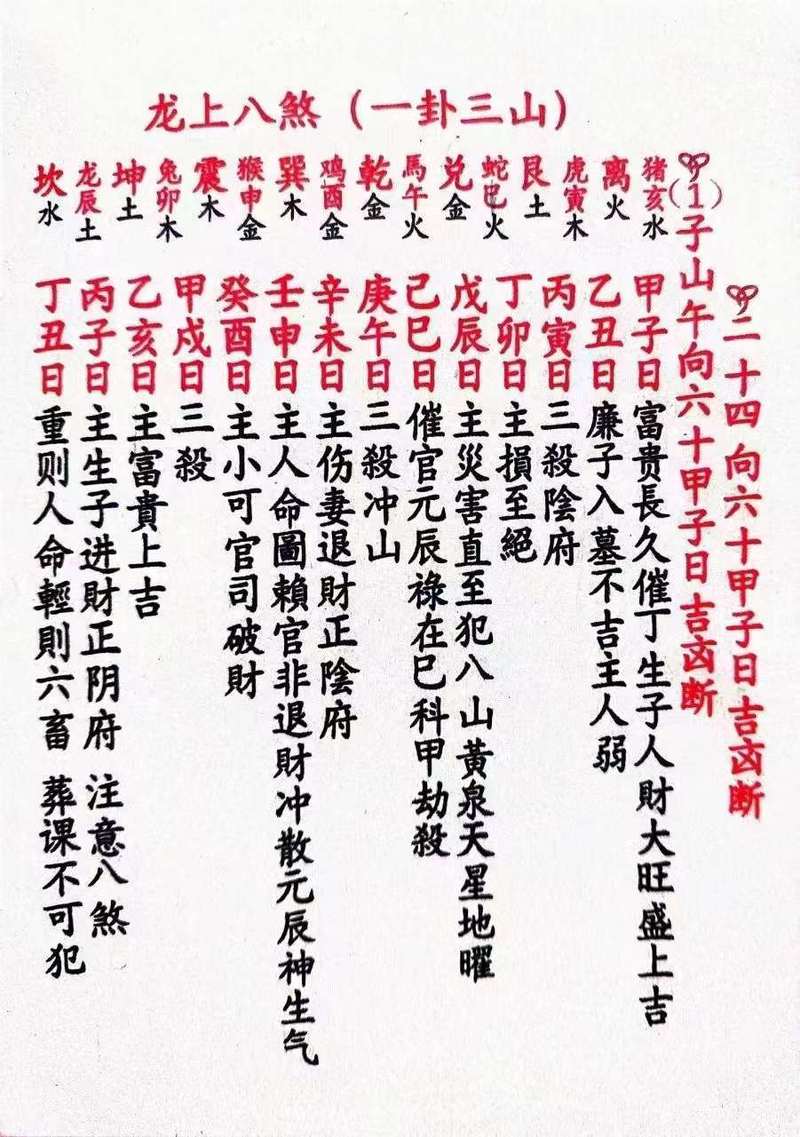 龙上八煞（一卦三山）
坎水
龙辰土
坤土
兔卯木
震木
猴申金
巽木
鸡酉金
乾金
馬午火
兑金
蛇巳火
艮土
虎寅木
离火
猪亥水
二十四向六十甲子日吉㐫断
（1）子山午向六十甲子日吉㐫断
甲子日富贵長久催丁生子人財大旺盛上吉
乙丑日廉子入墓不吉主人弱
丙寅日三殺陰府
丁卯日主損至絕
戊辰日主災害直至犯八山黃泉天星地曜
己巳日催官元辰祿在巳科甲劫殺
庚午日三殺冲山
辛未日主伤妻退財正陰府
壬申日主人命圖賴官非退財冲散元辰神生气
癸酉日主小可官司破財
甲戍日三殺
乙亥日主富貴上吉
丙子日主生子进財正阴府 注意八煞
丁丑日重则人命輕則六畜 葬课不可犯